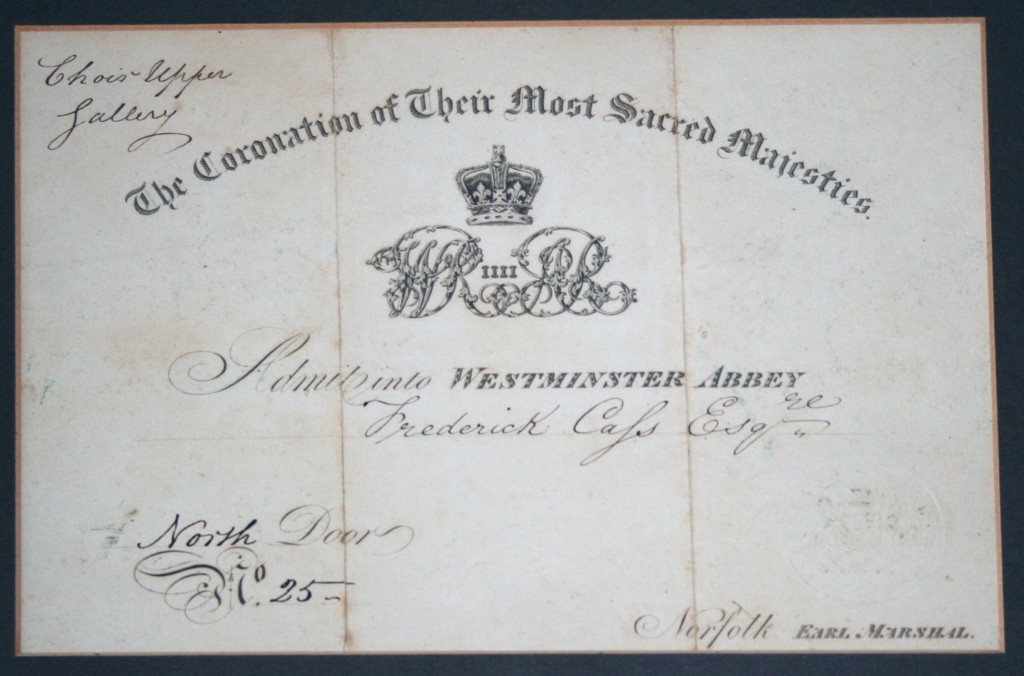 Chois Upper
Gallery
The Coronation of Their Most Sacred Majesties.
WR IIII AR
Admit into WESTMINSTER ABBEY
Frederick Cass Esqre
North Door
No. 25
Norfolk EARL MARSHAL.